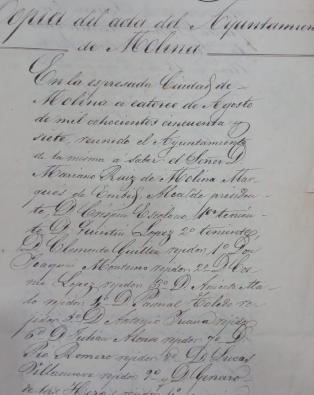 Copia del acta del Ayuntamiento
de Molina
En la espresada Ciudad de
Molina a catorce de Agosto
de mil ochocientos cincuenta y
siete, reunido el Ayuntamiento
de la misma a saber el Señor D.
Mariano Ruiz de Molina Mar-
ques de Embid, Alcalde presiden-
te, D. Crispin Escolano 1er tenien-
te, D. Quintin Lopez 2º teniente
D. Clemente Guillen rejidor 1º D.
Joaquin Montesino rejidor 2º D.
Lopez rejidor 3º D. Aniceto
rejidor 4º D. Pascual Toledo re-
jidor 5º D. Antonio rejidor
6º D. Julian rejidor 7º D.
Pio Romero rejidor 8º D. Lucas
Villanueva rejidor 9º y D. Genaro